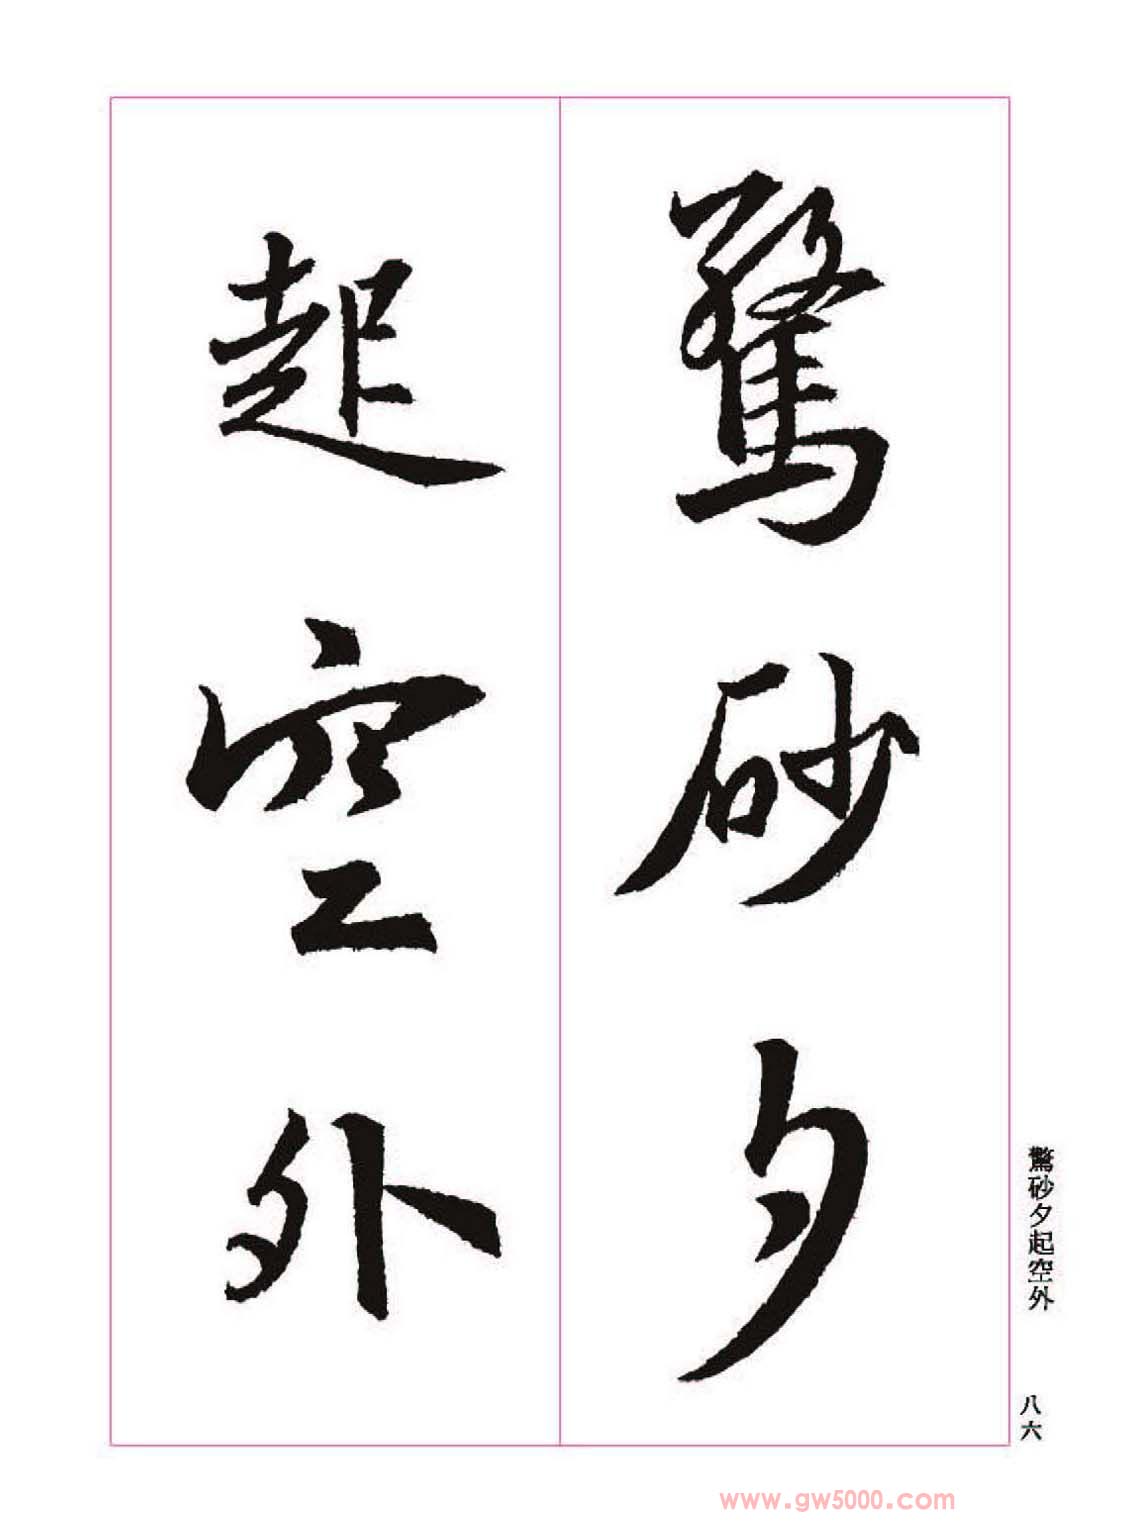 驚砂夕
起空外
驚砂夕起空外
八六
www.gw5000.com